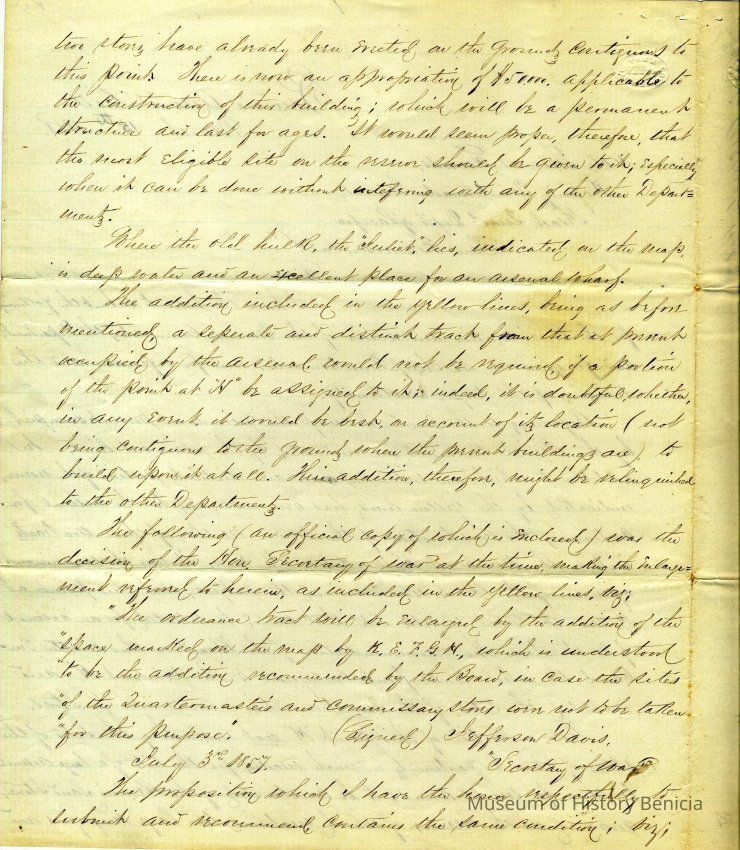 two story have already been erected on the grounds contiguous to
this point. There is now an appropriation of $50000. applicable to
the construction of this building; which will be a permanent
structure and last for ages. It would seem proper, therefore, that
the most eligible site on the reserve should be given to it; especially
when it can be done without intefering with any of the other Depart=
ments.
Where the old hulk, the "Juliet", lies, indicated on the map,
is deep water and an excellent place for an arsenal wharf.
The addition included in the yellow lines, being as before
mentioned a seperate and distinct tract from that at present
occupied by the arsenal would not be required if a portion
of the point at "H" be assigned to it; indeed, it is doubtful whether,
in any event it would be best, on account of its location (not
being contiguous to the grounds where the present buildings are), to
build upon it at all. This addition, therefore, might be relinquished
to the other Departments.
The following (an official copy of which is enclosed) was the
decision of the Hon. Secretary of War at the time, making the enlarge-
ment referred to herein, as included in the yellow lines, viz;
"The ordnance tract will be enlarged by the addition of the
"space marked on the map by K. E. F. G. H., which is understood
"to be the addition recommended by the Board, in case the sites
"of the Quartermasters and commissary stores were not to be taken
"for this purpose".
(Signed) Jefferson Davis,
July 3rd 1857.
"Secretary of War"
The proposition which I have the honor respectfully to
submit and recommend contains the same condition; viz;
Museum of History Benicia